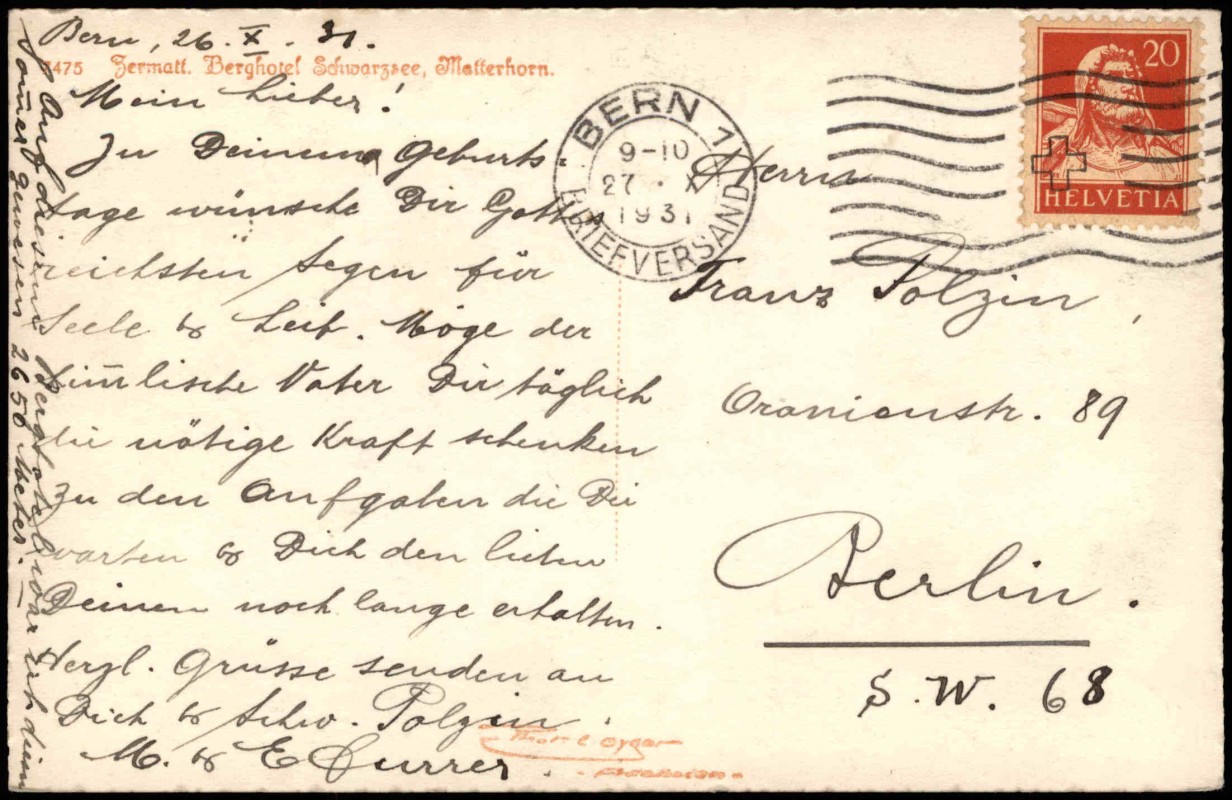 Bern, 26. X. 31.
7475 Zermatt. Berghotel Schwarzsee, Matterhorn.
Mein Lieber!
Zu Deinem Geburts-
tage wünsche Dir Gottes
reichsten Segen für
Seele & Leib. Möge der
himlische Vater Dir täglich
die nötige Kraft schenken
zu den Aufgaben die Dir
warten & Dich den lieben
Deinen noch lange erhalten.
Herzl. Grüsse senden an
Dich & Schw. Polzin.
M. & E Furrer.
Auf diesem Berghotel war ich diesen
Somer gewesen 2650 Meter.
BERN 1
9-10
27. X
1931
BRIEFVERSAND
20
HELVETIA
Herrn
Franz Polzin,
Oranienstr. 89
Berlin.
S.W. 68